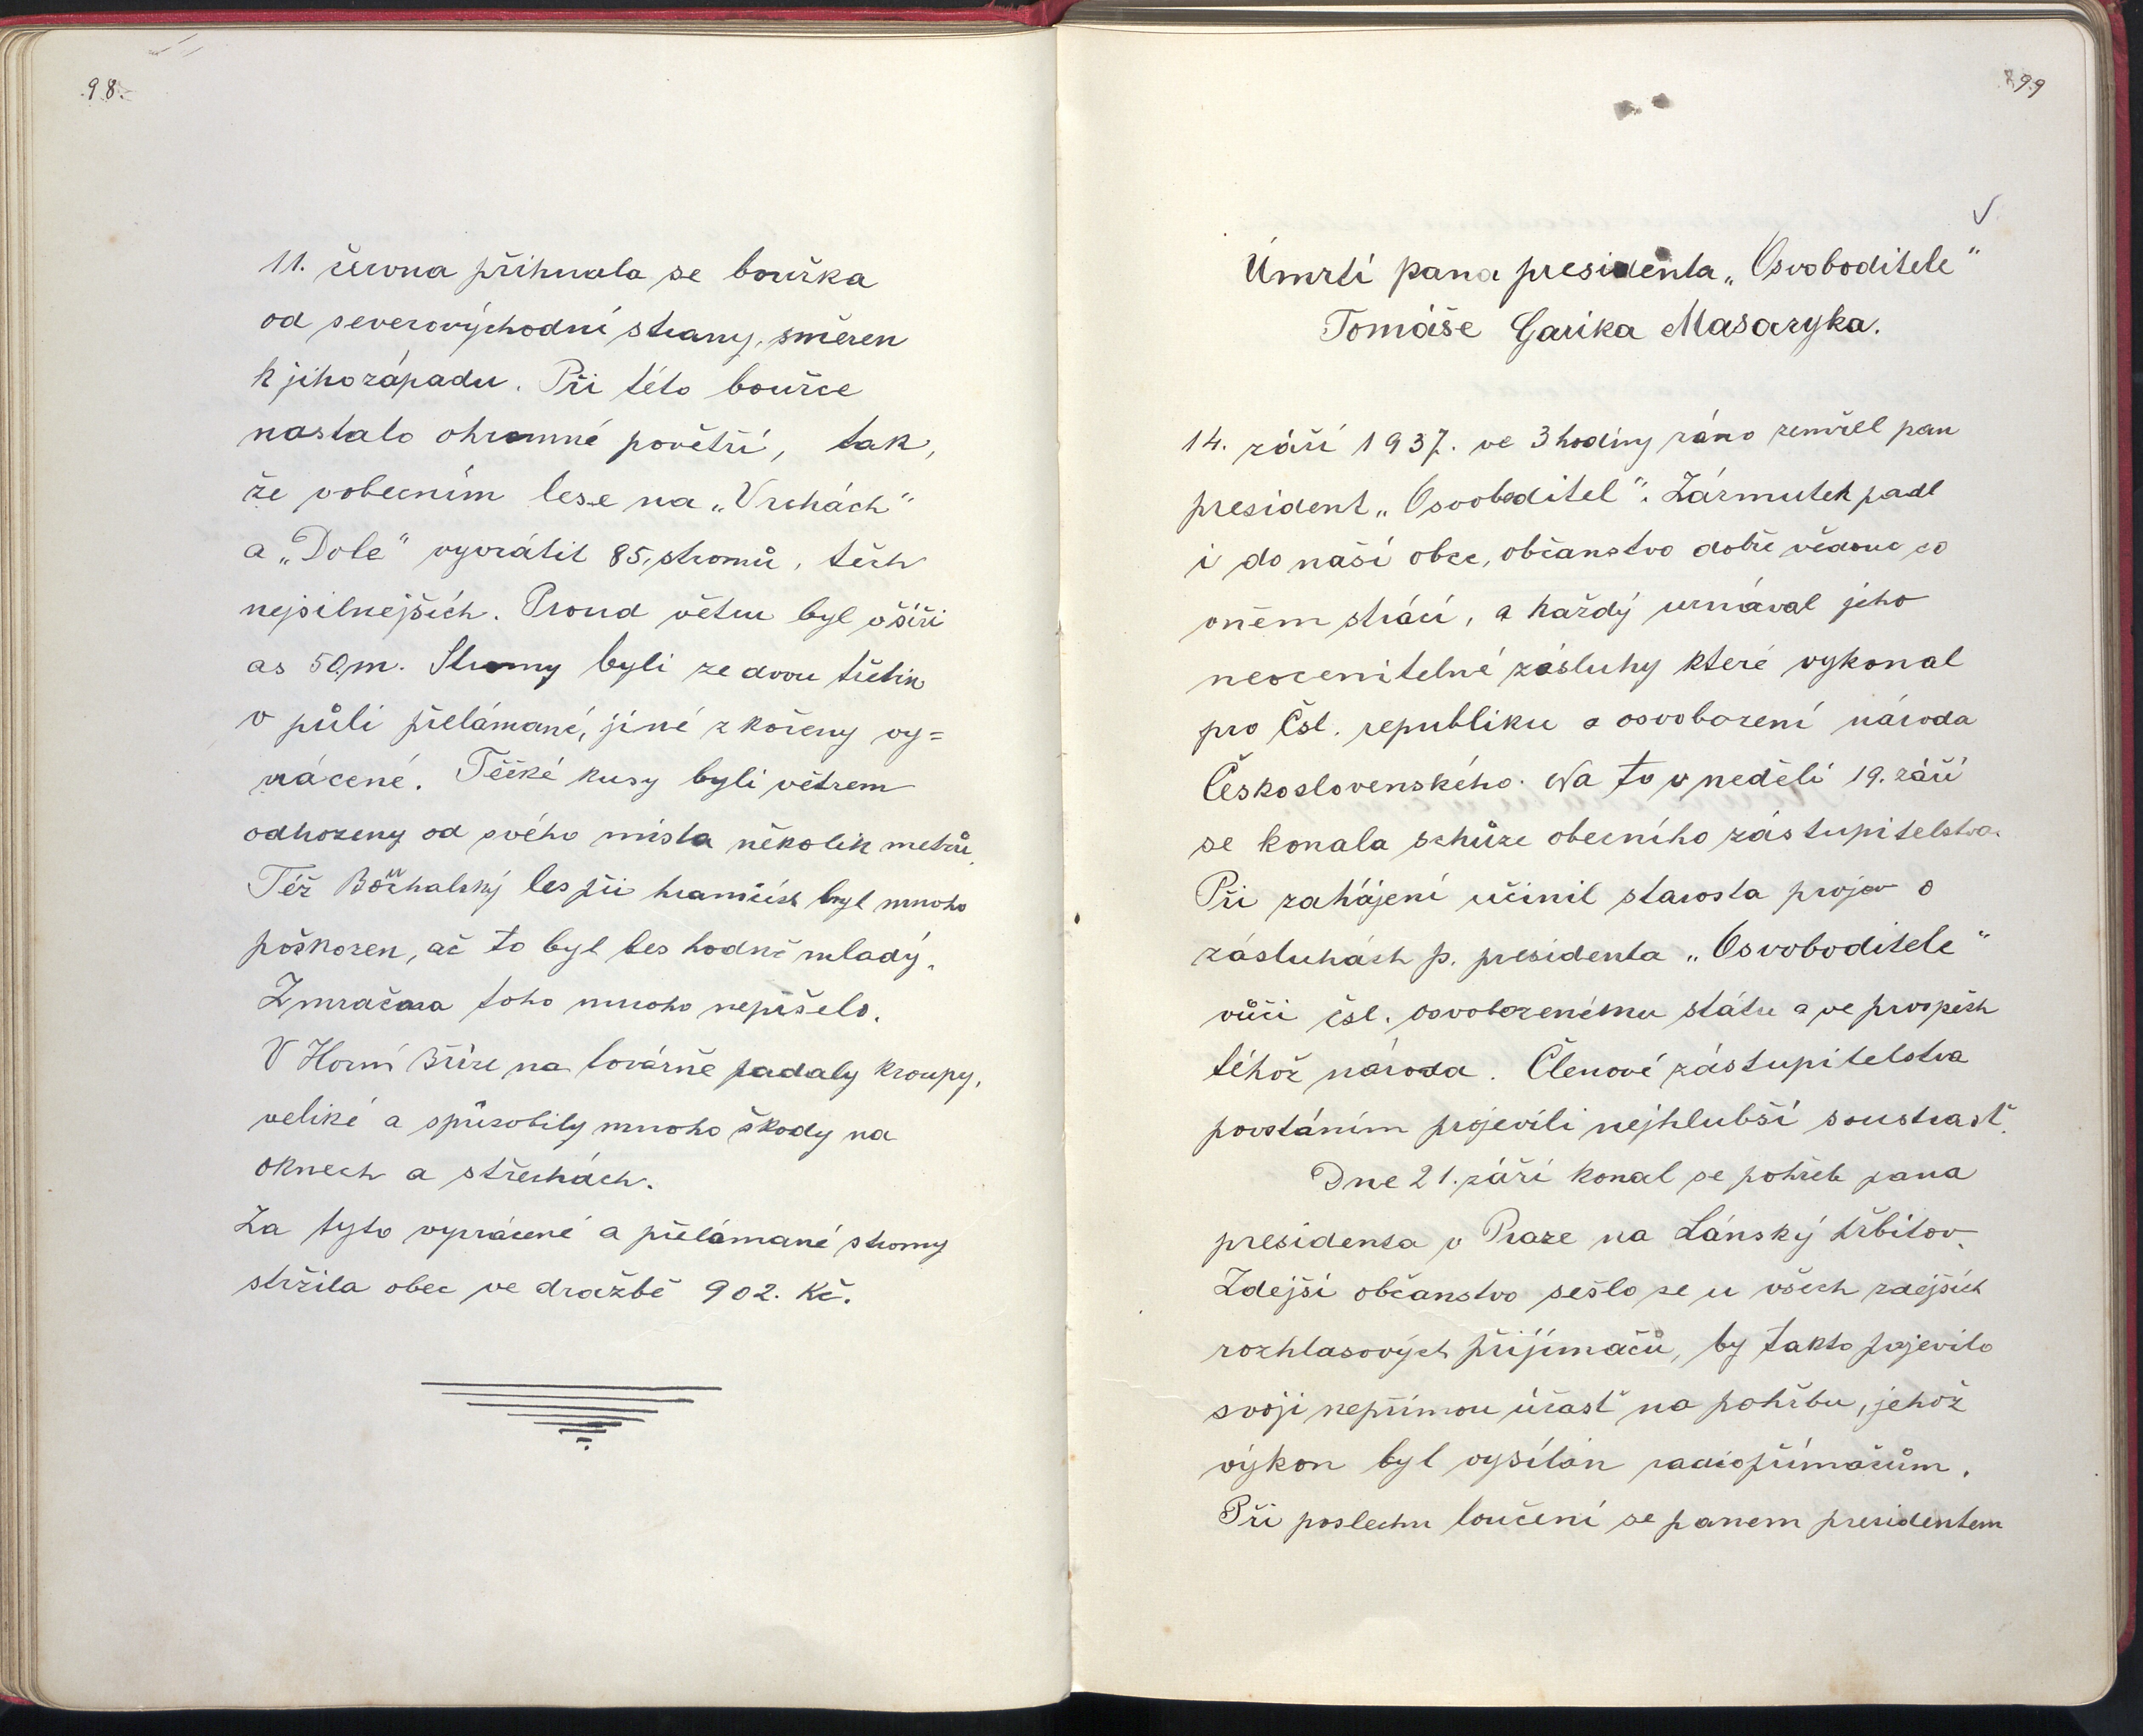 98.
11. června přihnala se bouřka
od severovýchodní strany, směren
k jihozápadu. Při této bouřce
nastalo ohromné povětří, tak,
že vobecním lese na „Vrchách"
a „Dole" vyvrátil 85. stromů, těch
nejsilnejších. Proud větru byl v šíři
as 50 m. Stromy byli ze dvou třetin
v půli přelámané, jiné z kořeny vy=
vrácené. Těžké kusy byli větrem
odhozeny od svého místa několik metrů.
Též les při hranicích byl mnoho
poškozen, ač to byl les hodně mladý.
Zmračna toho mnoho nepršelo.
V Horní Bříze na továrně padaly kroupy,
veliké a spůsobily mnoho škody na
oknech a střechách.
Za tyto vyvrácené a přelámané stromy
stržila obec ve dražbě 902. Kč.
99
Úmrtí pana presidenta „Osvoboditele"
Tomáše Garika Masaryka.
14. září 1937. ve 3 hodiny ráno zemřel pan
president „Osvoboditel". Zármutek padl
i do naší obce, občanstvo dobře vědouc co
vněm ztrácí, a každý uznával jeho
neocenitelné zásluhy které vykonal
pro Čsl. republiku a osvobození národa
Československého. Na to v neděli 19. září
se konala schůze obecního zástupitelstva.
Při zahájení učinil starosta projev o
zásluhách p. presidenta „Osvoboditele"
vůči čsl. osvobozenému státu a ve prospěch
téhož národa. Členové zástupitelstva
povstáním projevili nejhlubší soustrast.
Dne 21. září konal se pohřeb pana
presidenta v Praze na Lánský hřbitov.
Zdejší občanstvo sešlo se u všech zdejších
rozhlasových přijímačů, by takto projevilo
svoji nepřímou účast na pohřbu, jehož
výkon byl vysílán radiopřímačům.
Při poslechu loučení se panem presidentem